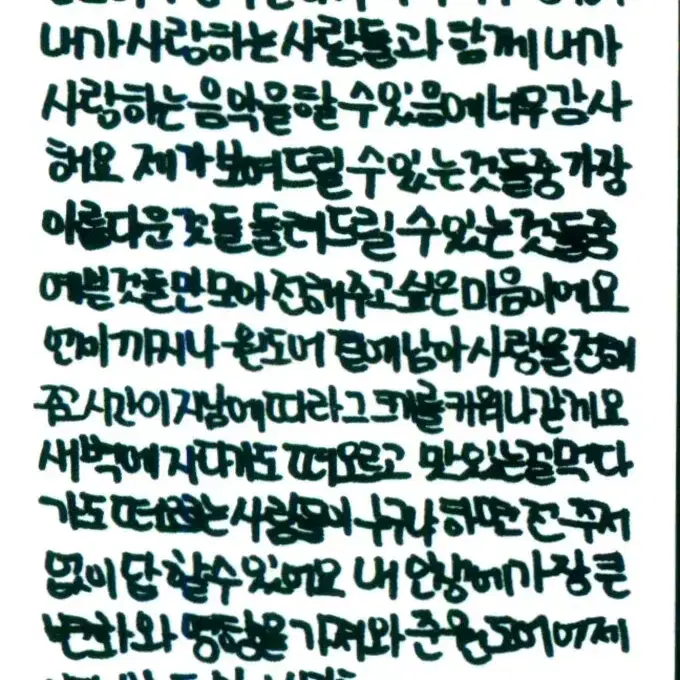 내가 사랑하는 사람들과 함께 내가
사랑하는 음악을 할 수 있음에 너무 감사
해요 제가 보여드릴 수 있는 것들 중 가장
아름다운 것들 들려드릴 수 있는 것들 중
예쁜 것들만 모아 전해주고 싶은 마음이에요
언제까지나 원도어 곁에 남아 사랑을 전해
줄꼬 시간이 지남에 따라 그 크기를 키워나갈게요
새벽에 자다가도 떠오르고 맛있는걸 먹다
가도 떠오르는 사람들이 누구냐 하면 전 주저
없이 답 할 수 있어요 내 인생에 가장 큰
변화와 명장을 가져와 준 원도어 이제